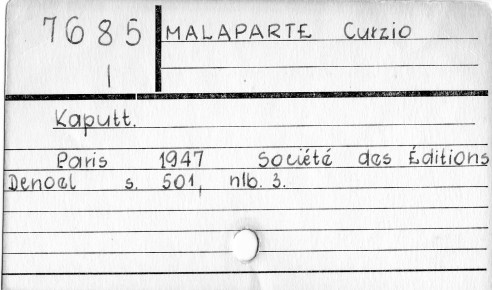 7685 MALAPARTE Curzio
I
Kaputt.
Paris 1947 Société des Éditions
Denoel s. 501, nlb. 3.